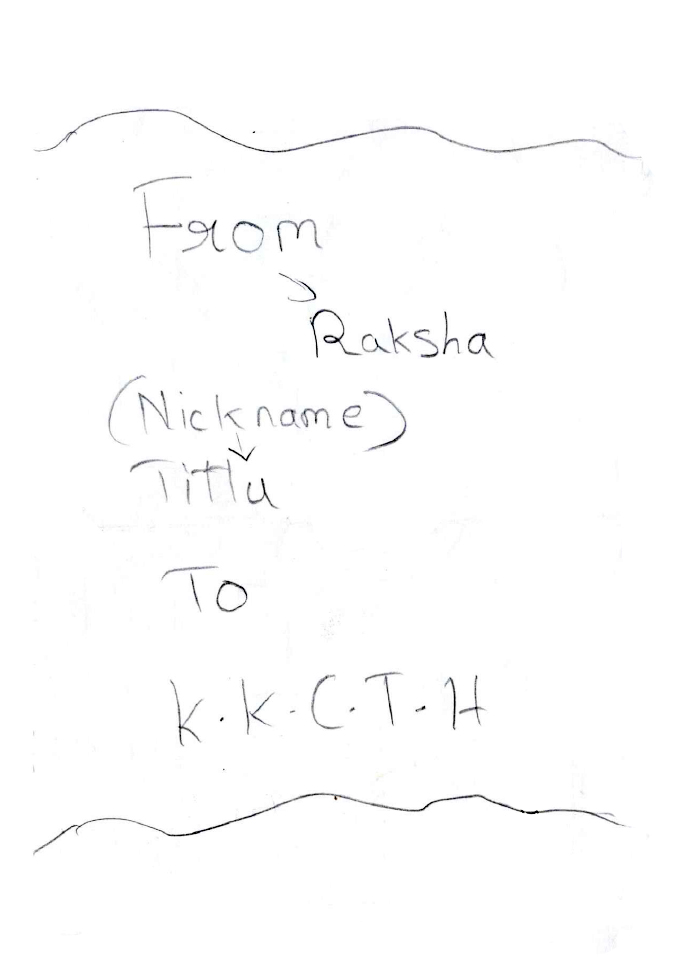 From
Raksha
(Nickname)
Titlu
To
K.K.C.T.H